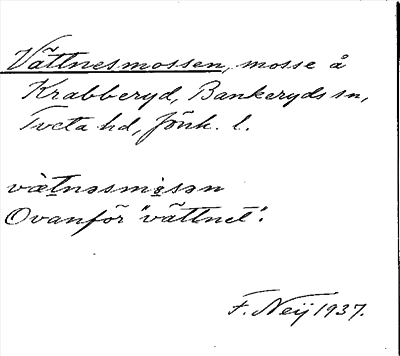 Vättnesmossen, mosse å
Krabberyd, Bankeryds sn,
Tveta hd, Jönk. l.
vàetnəsmisən
Ovanför "vättnet".
F. Neij 1937.